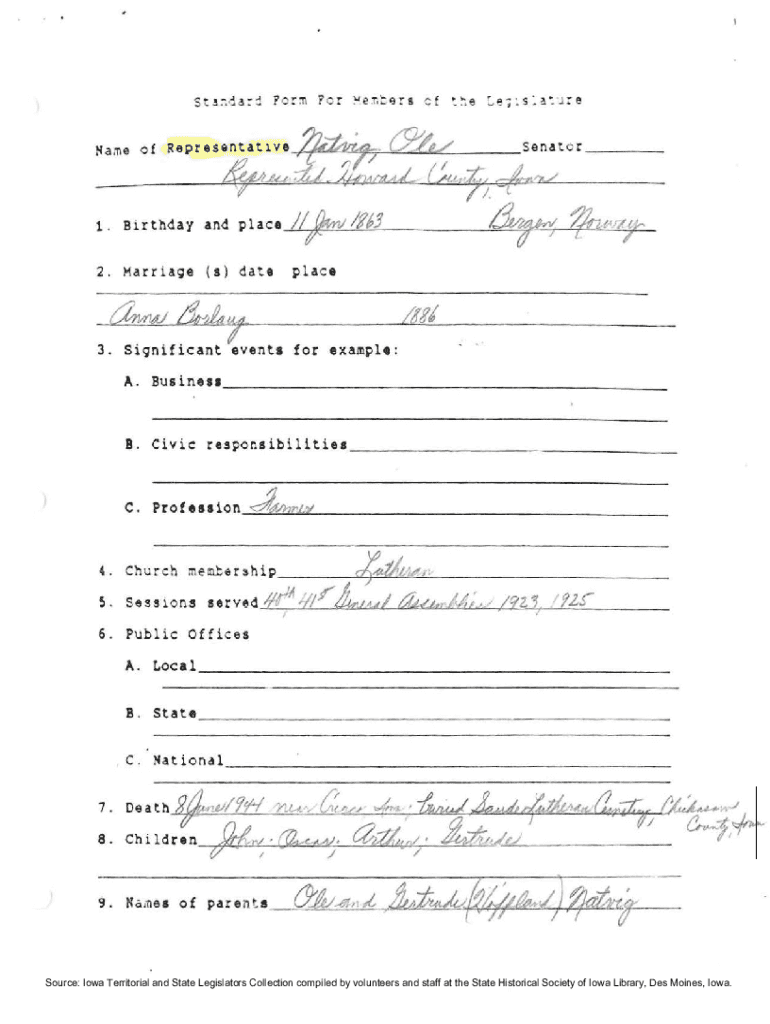 Standard Form For Members of the Legislature
Name of Representative Natvig, Ole Senator
Represented Howard County, Iowa
1. Birthday and place 11 Jan 1863 Bergen, Norway
2. Marriage (s) date place
Anna Borlaug 1886
3. Significant events for example:
A. Business
B. Civic responsibilities
C. Profession Farmer
4. Church membership Lutheran
5. Sessions served 40th, 41st General Assemblies 1923, 1925
6. Public Offices
A. Local
B. State
C. National
7. Death 8 June 1944 near Cresco Iowa; buried Saude Lutheran Cemetery, Chickasaw
County, Iowa
8. Children John; Oscar; Arthur; Gertrude
9. Names of parents Ole and Gertrude (Hoppland) Natvig
Source: Iowa Territorial and State Legislators Collection compiled by volunteers and staff at the State Historical Society of Iowa Library, Des Moines, Iowa.